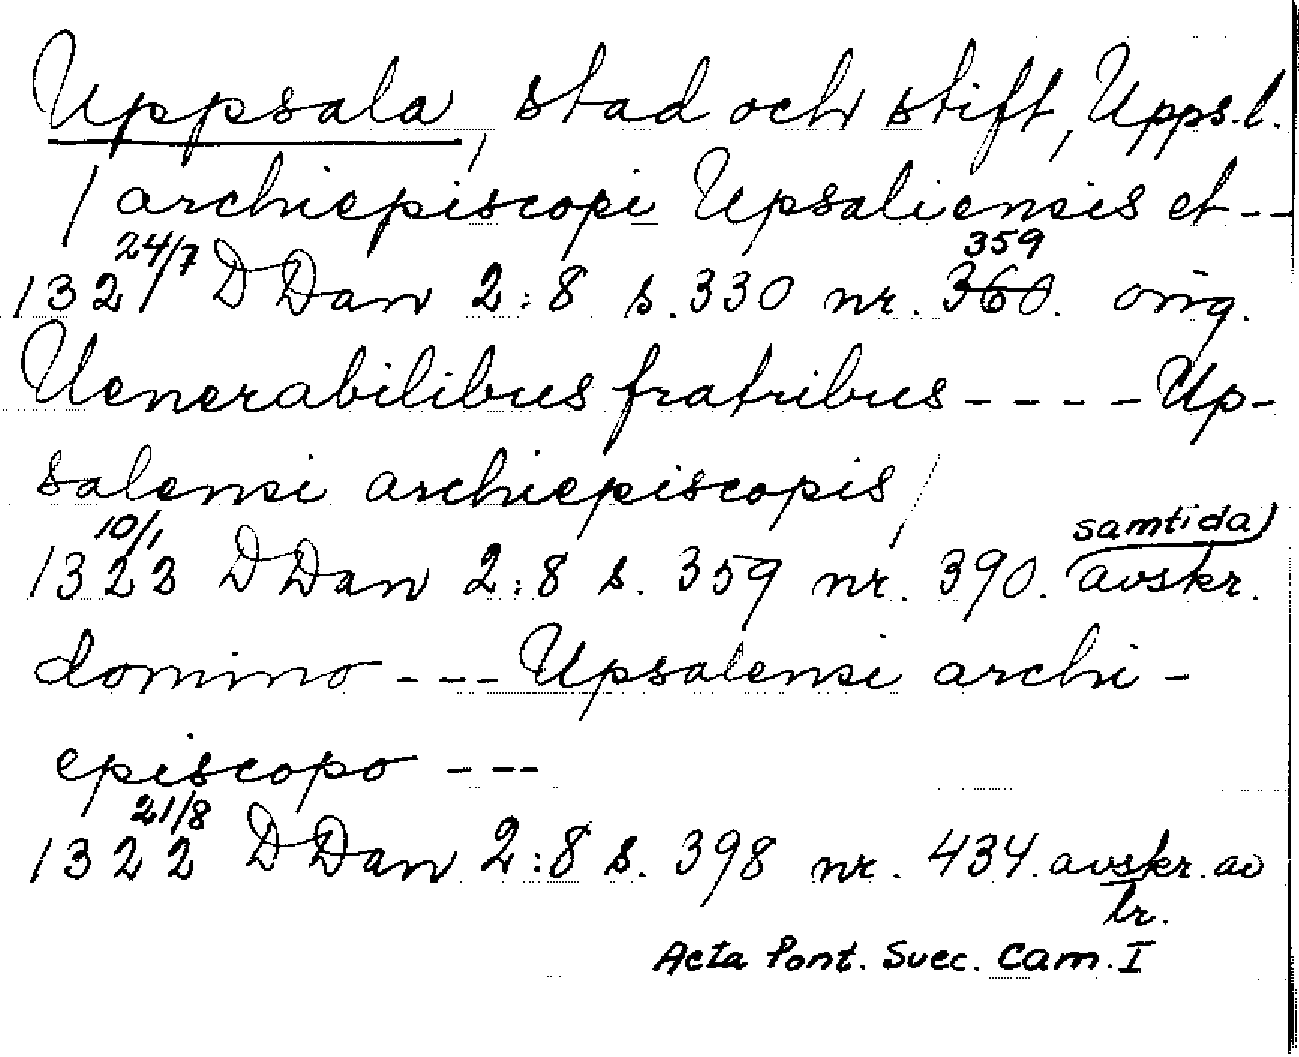 Uppsala, stad och stift, Upps.l.
/ archiepiscopi Upsaliensis et --
1321 24/7 DDan 2:8 s. 330 nr. 360. 359 orig.
Uenerabilibus fratribus - - - - Up-
salensi archiepiscopis /
1322 10/1 DDan 2:8 s. 359 nr. 390. samtida avskr.
domino --- Upsalensi archi-
episcopo ---
1322 21/8 DDan 2:8 s. 398 nr. 434. avskr. av
tr.
Acta Pont. Suec. Cam. I